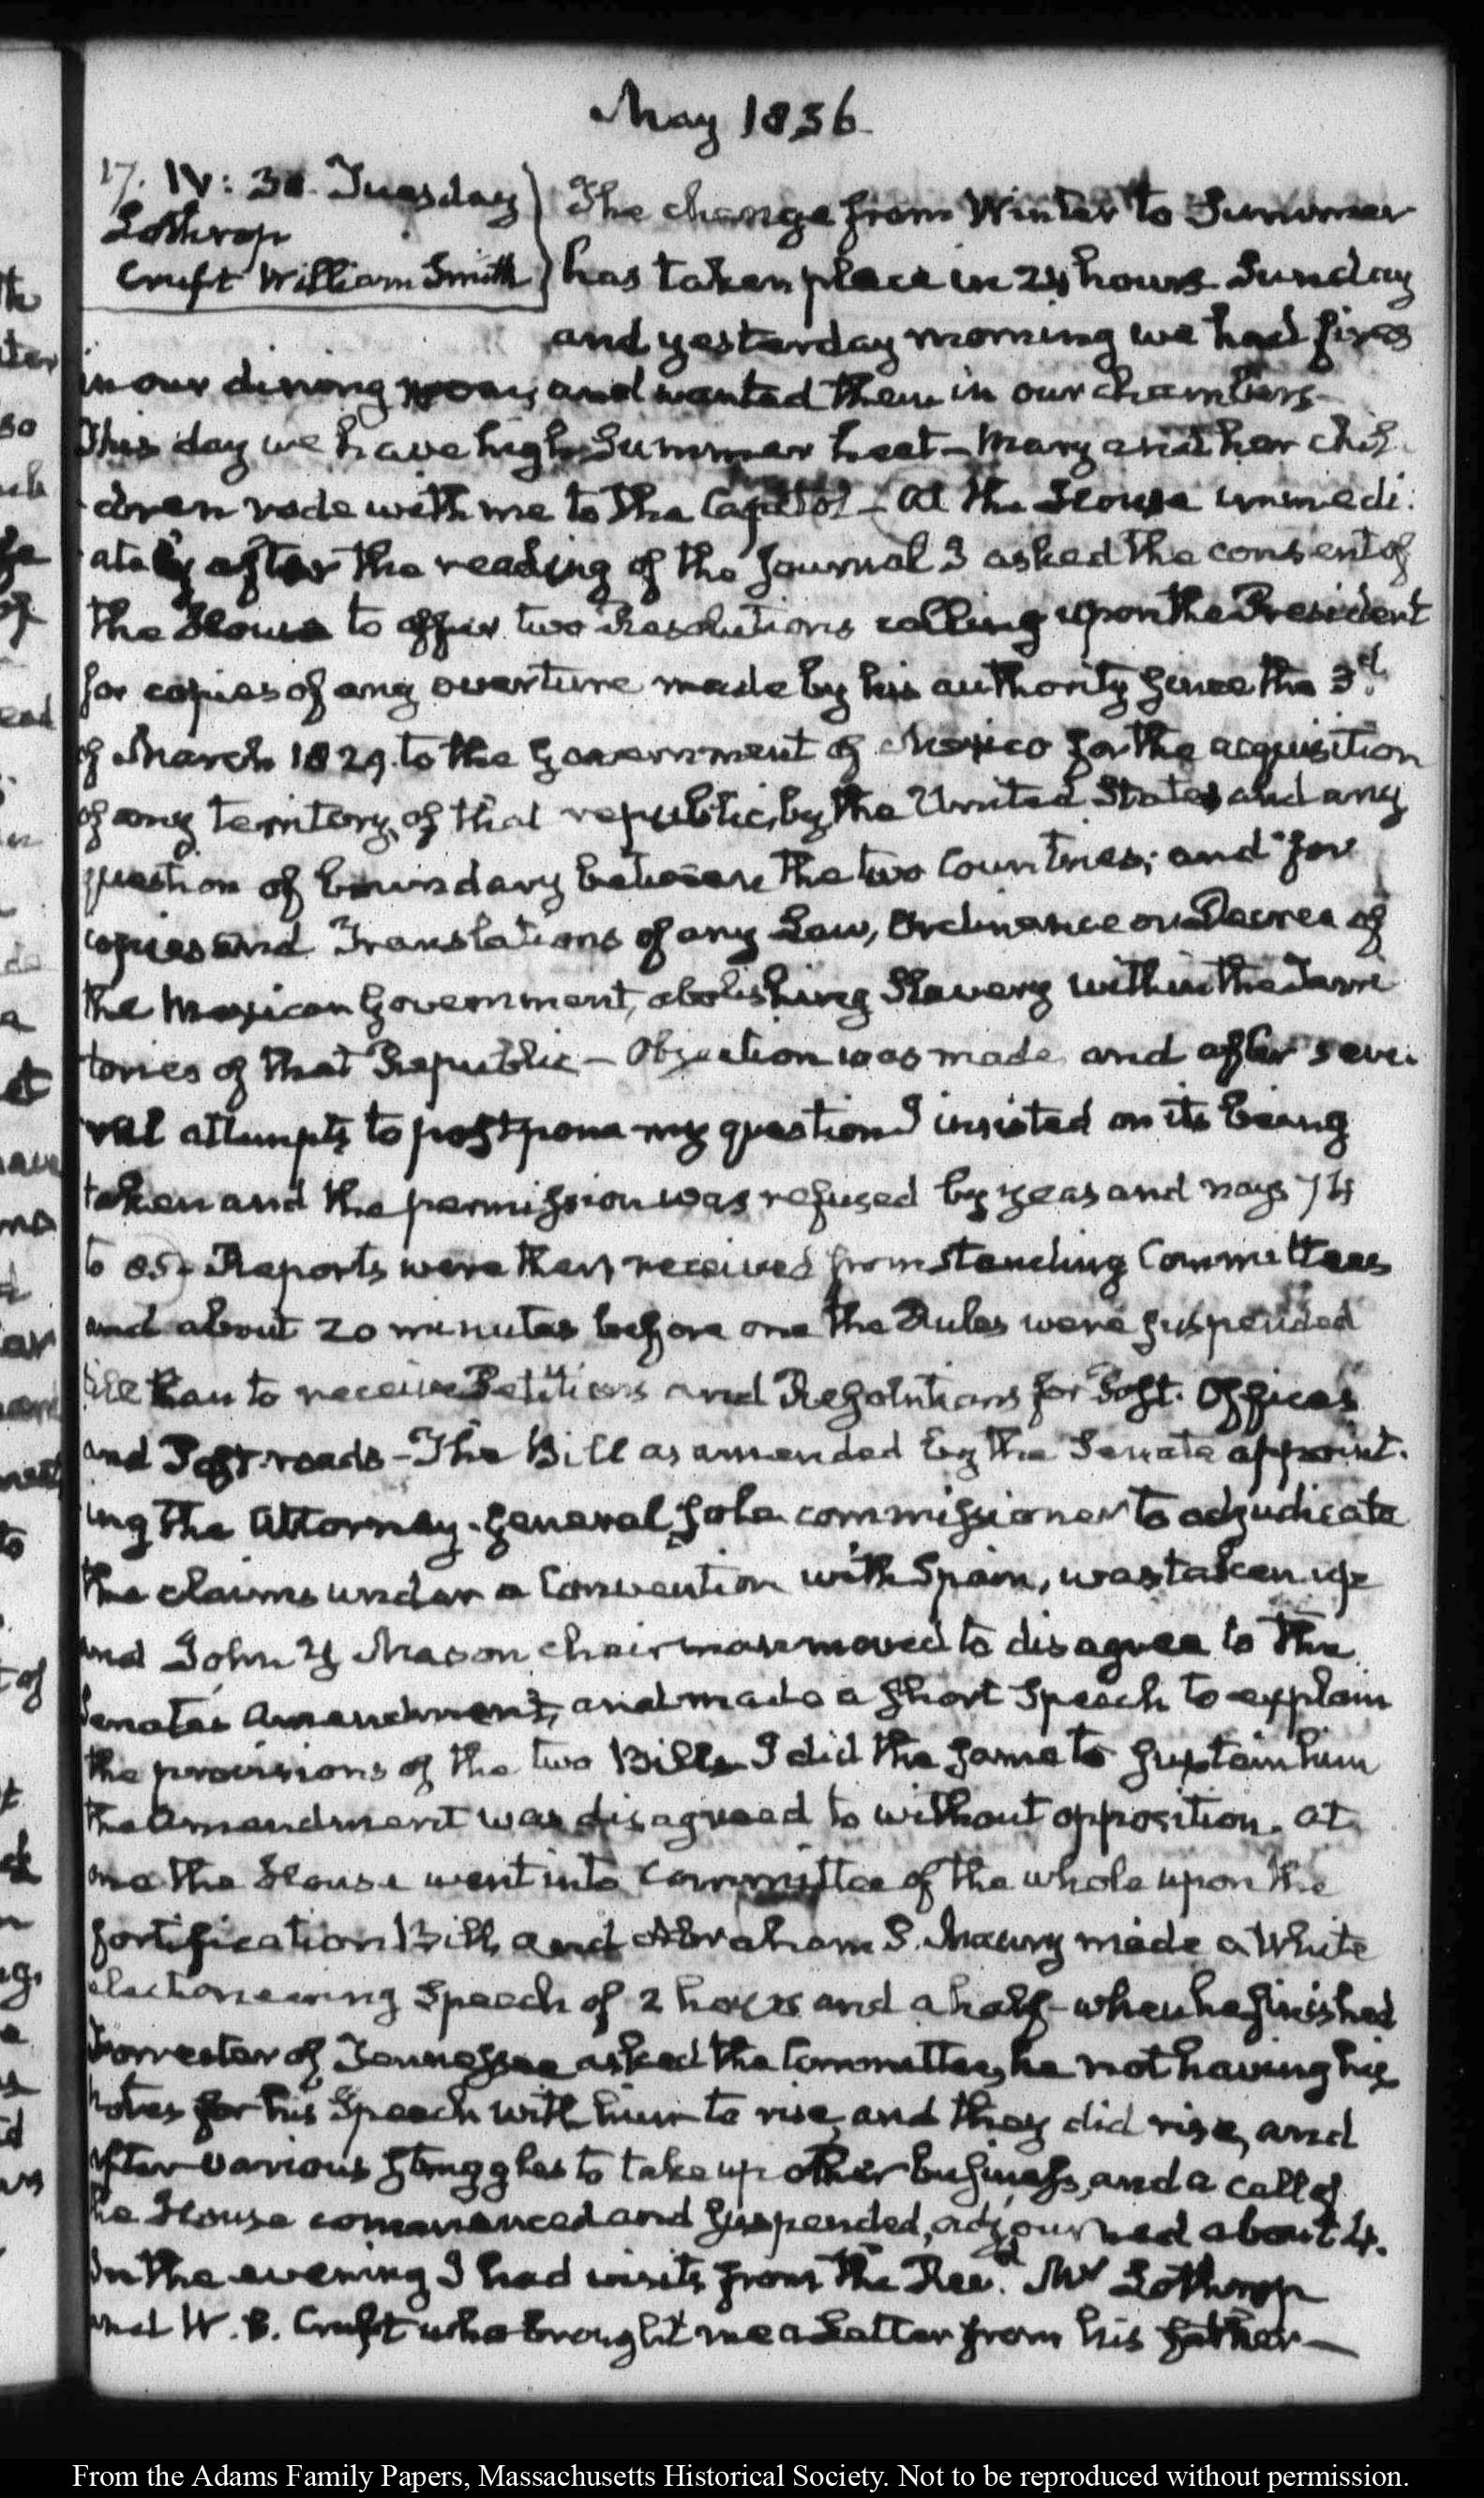 May 1836.
17. IV: 30. Tuesday
Lothrop
Cruft William Smith
The change from Winter to Summer
has taken place in 24 hours Sunday
and yesterday morning we had fires
in our dining room, and wanted them in our chambers—
This day we have high Summer heat— Mary and her chil-
dren rode with me to the Capitol— At the House immedi-
ately after the reading of the Journal I asked the consent of
the House to offer two Resolutions calling upon the President
for copies of any overture made by his authority since the 3d.
of March 1829. to the Government of Mexico for the acquisition
of any territory, of that republic, by the United States and any
question of boundary between the two Countries; and for
copies and Translations of any Law, Ordinance or Decree of
the Mexican Government, abolishing Slavery within the Terri
tories of that Republic— Objection was made and after seve-
ral attempts to postpone my question I insisted on its being
taken and the permission was refused by yeas and nays 74
to 85. Reports were then received from Standing Committees
and about 20 minutes before one the Rules were suspended
to receive Petitions and Resolutions for Post. Offices
and Post-roads— The Bill as amended by the Senate appoint-
ing the Attorney-General sole commissioner to adjudicate
the claims under a Convention with Spain, was taken up
and John Y Mason chairman moved to disagree to the
Senates Amendment, and made a short Speech to explain
the provisions of the two Bills I did the same to sustain him
The Amendment was disagreed to without opposition. At
one the House went into Committee of the whole upon the
fortification Bill, and Abraham P. Maury made a White
electioneering Speech of 2 hours and a half— when he finished
Forrester of Tennessee asked the Committee, he not having his
notes for his Speech with him to rise, and they did rise, and
after various struggles to take up other business, and a call of
the House commenced and suspended, adjourned about 4.
In the evening I had visits from the Revd. Mr Lothrop
and W. S. Cruft who brought me a Letter from his father—
From the Adams Family Papers, Massachusetts Historical Society. Not to be reproduced without permission.